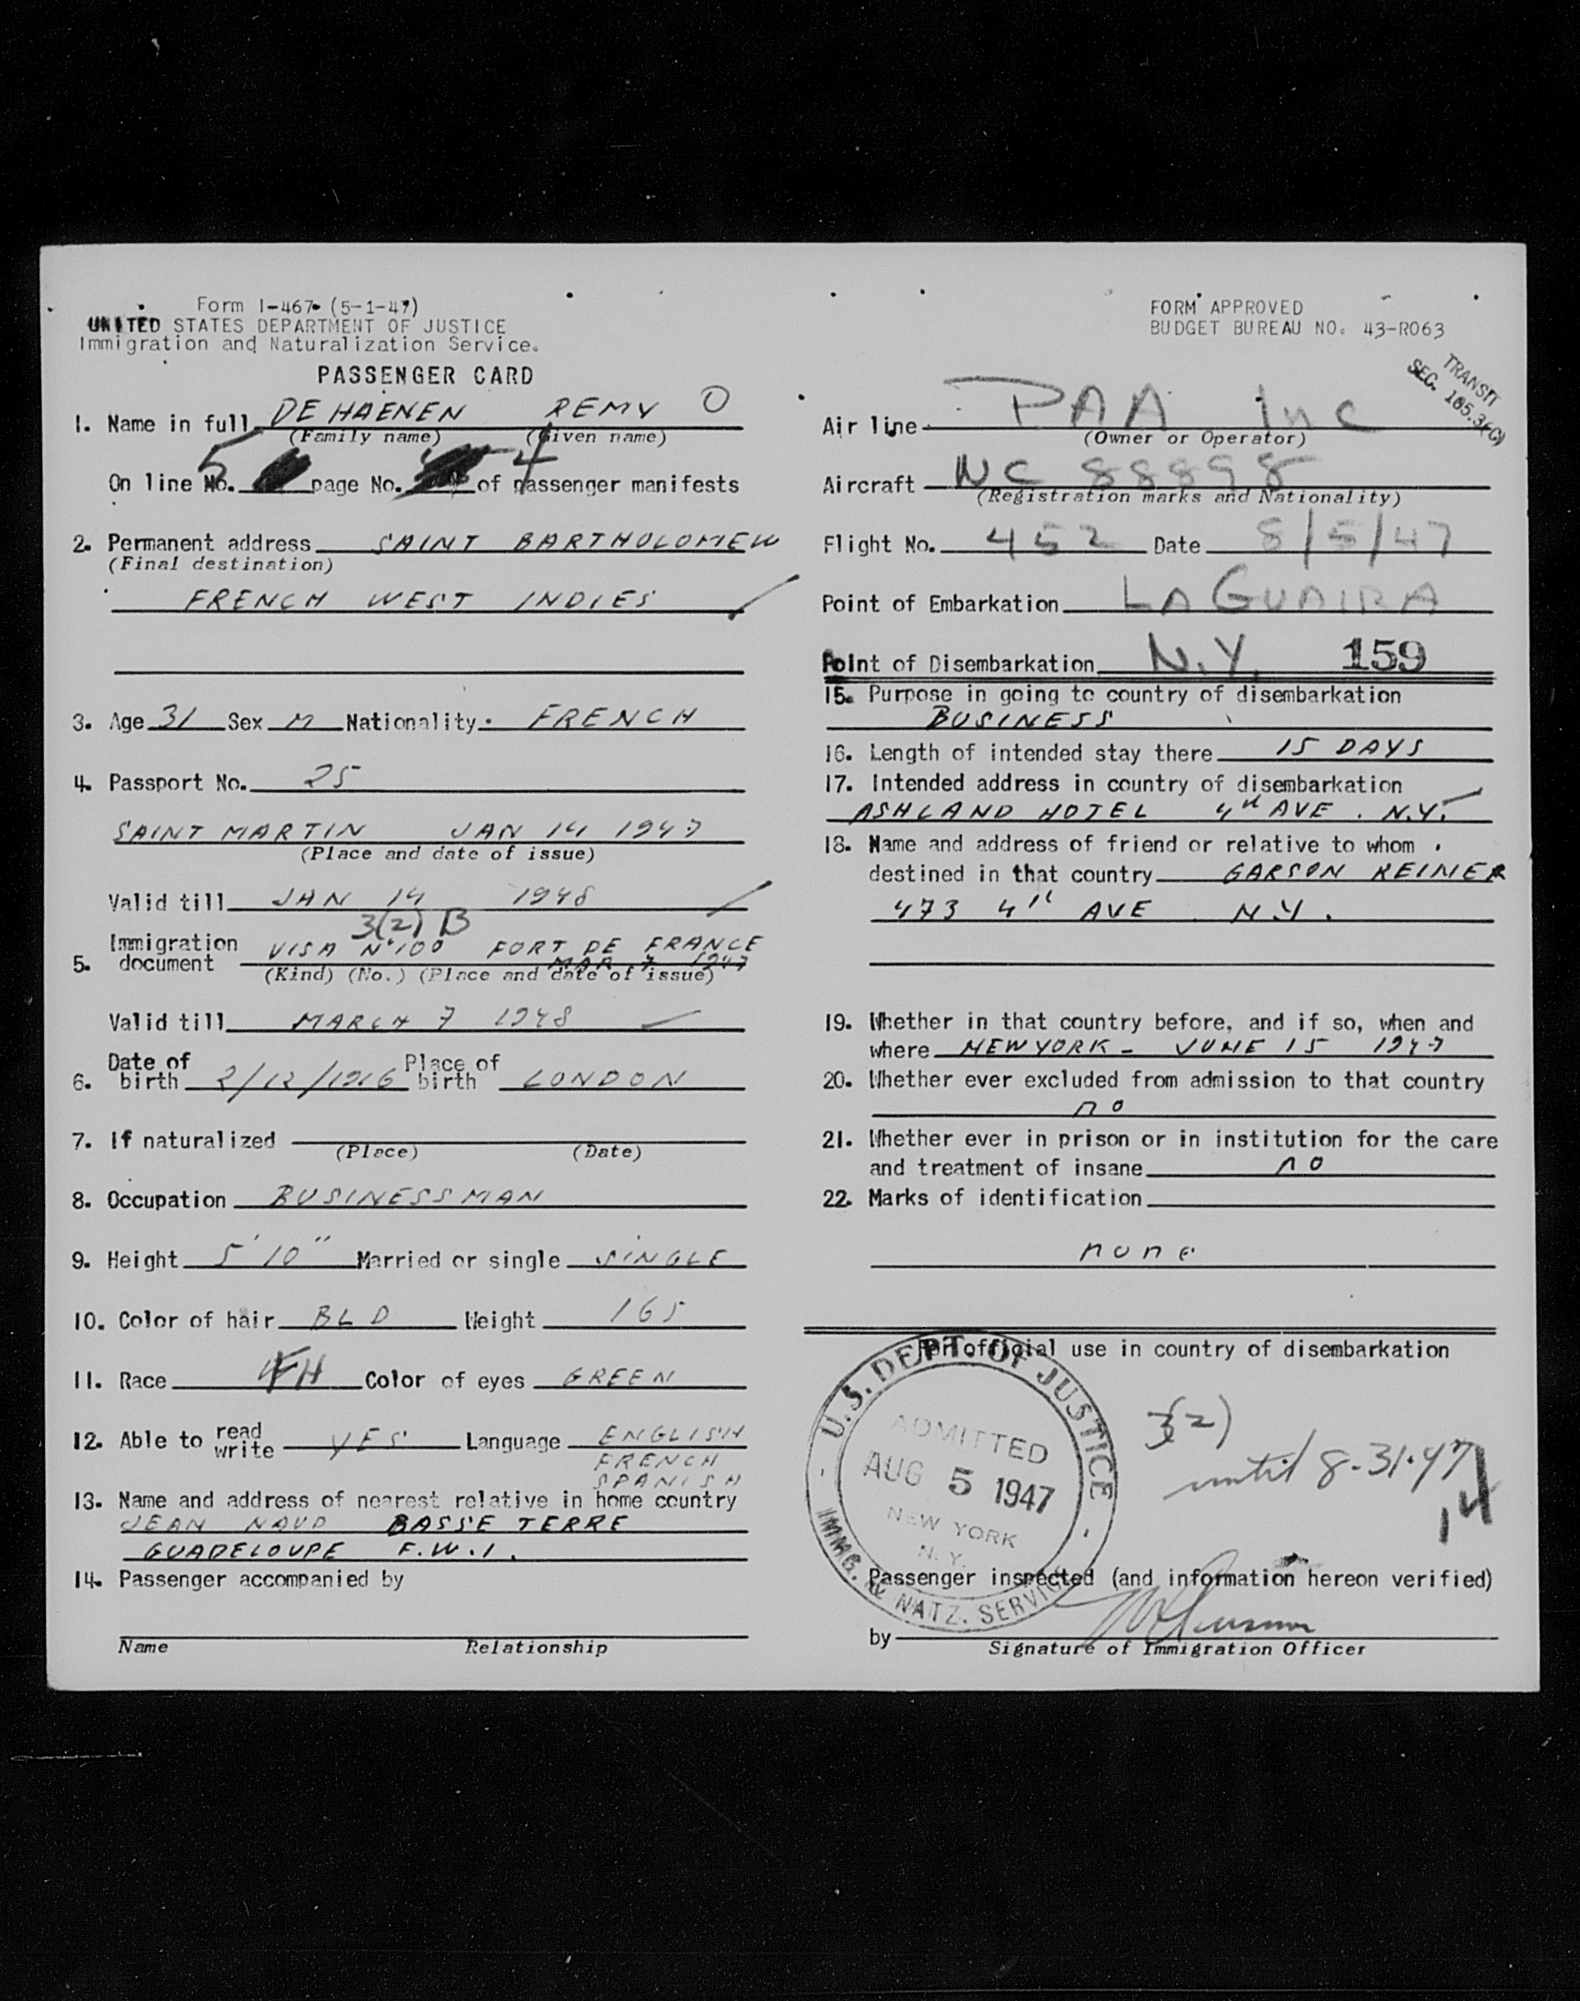 Form I-467 (5-1-47)
UNITED STATES DEPARTMENT OF JUSTICE
Immigration and Naturalization Service.
PASSENGER CARD
1. Name in full DE HAENEN REMY O
(Family name) (Given name)
5 4
On line No. page No. of passenger manifests
2. Permanent address SAINT BARTHOLOMEW
(Final destination)
FRENCH WEST INDIES
3. Age 31 Sex M Nationality FRENCH
4. Passport No. 25
SAINT MARTIN JAN 14 1947
(Place and date of issue)
Valid till JAN 14 1948
3(2) B
5. Immigration document VISA N° 100 FORT DE FRANCE
MAR 7 1947
(Kind) (No.) (Place and date of issue)
Valid till MARCH 7 1948
6. Date of birth 2/12/1916 Place of birth LONDON
7. If naturalized
(Place) (Date)
8. Occupation BUSINESSMAN
9. Height 5'10" Married or single SINGLE
10. Color of hair BLD Weight 165
11. Race FH Color of eyes GREEN
12. Able to read write YES Language ENGLISH
FRENCH
SPANISH
13. Name and address of nearest relative in home country
JEAN NAUD BASSE TERRE
GUADELOUPE F.W.I.
14. Passenger accompanied by
Name Relationship
FORM APPROVED
BUDGET BUREAU NO. 43-R063
TRANSIT
SEC. 165.3(G)
Air line PAA Inc
(Owner or Operator)
Aircraft NC 88898
(Registration marks and Nationality)
Flight No. 452 Date 8/5/47
Point of Embarkation LA GUAIRA
Point of Disembarkation N.Y. 159
15. Purpose in going to country of disembarkation
BUSINESS
16. Length of intended stay there 15 DAYS
17. Intended address in country of disembarkation
ASHLAND HOTEL 4th AVE. N.Y.
18. Name and address of friend or relative to whom
destined in that country GARSON REINER
473 4th AVE N.Y.
19. Whether in that country before, and if so, when and
where NEW YORK - JUNE 15 1947
20. Whether ever excluded from admission to that country
no
21. Whether ever in prison or in institution for the care
and treatment of insane no
22. Marks of identification
none
For official use in country of disembarkation
U.S. DEPT. OF JUSTICE
ADMITTED
AUG 5 1947
NEW YORK
N.Y.
IMMG. & NATZ. SERVICE
3(2)
until 8-31-47
14
Passenger inspected (and information hereon verified)
by
Signature of Immigration Officer